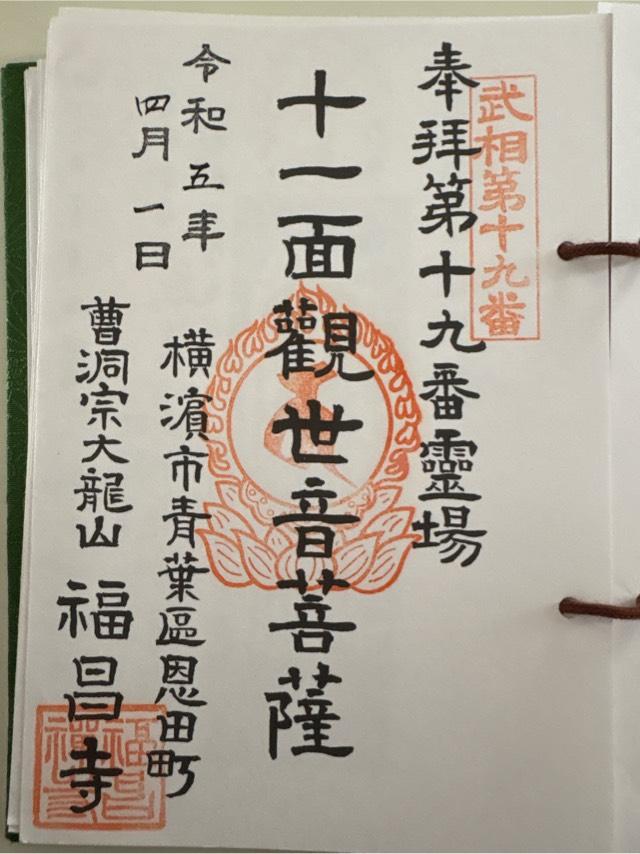 武相第十九番
奉拜第十九番靈場
十一面觀世音菩薩
令和五年
四月一日
橫濱市青葉區恩田町
曹洞宗大龍山
福昌寺